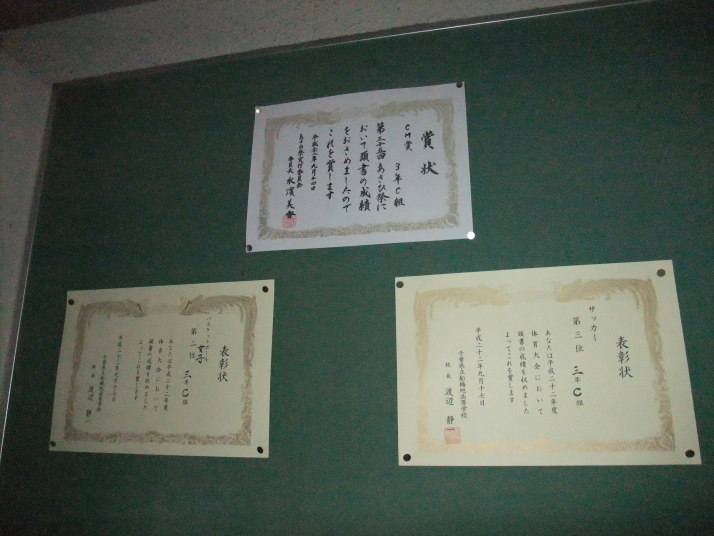 賞状
CM賞 3年C組
おいて頭書の成績
をおさめましたので
これを賞します
委員長
表彰状
バスケットボール
女子
第二位 三年C組
あなたは平成二十二年度
体育大会において
頭書の成績を収めました
よってこれを賞します
平成二十二年九月十七日
千葉県立船橋旭高等学校
校長 渡辺 静一
表彰状
サッカー
第三位 三年C組
あなたは平成二十二年度
体育大会において
頭書の成績を収めました
よってこれを賞します
平成二十二年九月十七日
千葉県立船橋旭高等学校
校長 渡辺 静一